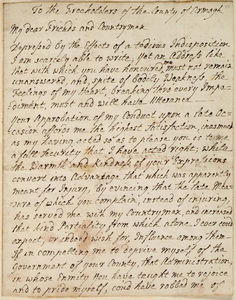 To the Freeholders of the County of Armagh
My dear Friends and Countrymen
Depressed by the Effects of a tedious Indisposition
I am scarcely able to write, yet an Address like
that with which you have honoured me must not remain
unanswered, and in spite of bodily Weakness, the
Feelings of my Heart, breaking thro' every Impe-
diment, must and will have Utterance.
Your Approbation of my Conduct upon a late Oc-
casion affords me the highest Satisfaction, inasmuch
as my having acted so as to please you is to me
a full Security that I have acted right; while
the Warmth and Kindness of your Expressions
convert into Advantage that which was apparently
meant for Injury, By evincing that the late Mea-
sure of which you complain, instead of injuring,
has served me with my Countrymen, and increased
that kind Partiality from which alone I ever could
expect, or indeed wish for Influence among them.
If in competing me to deprive myself of the
Government of your County, the Administration,
in whose Enmity You have taught me to rejoice
and to pride myself, could have robbed me of